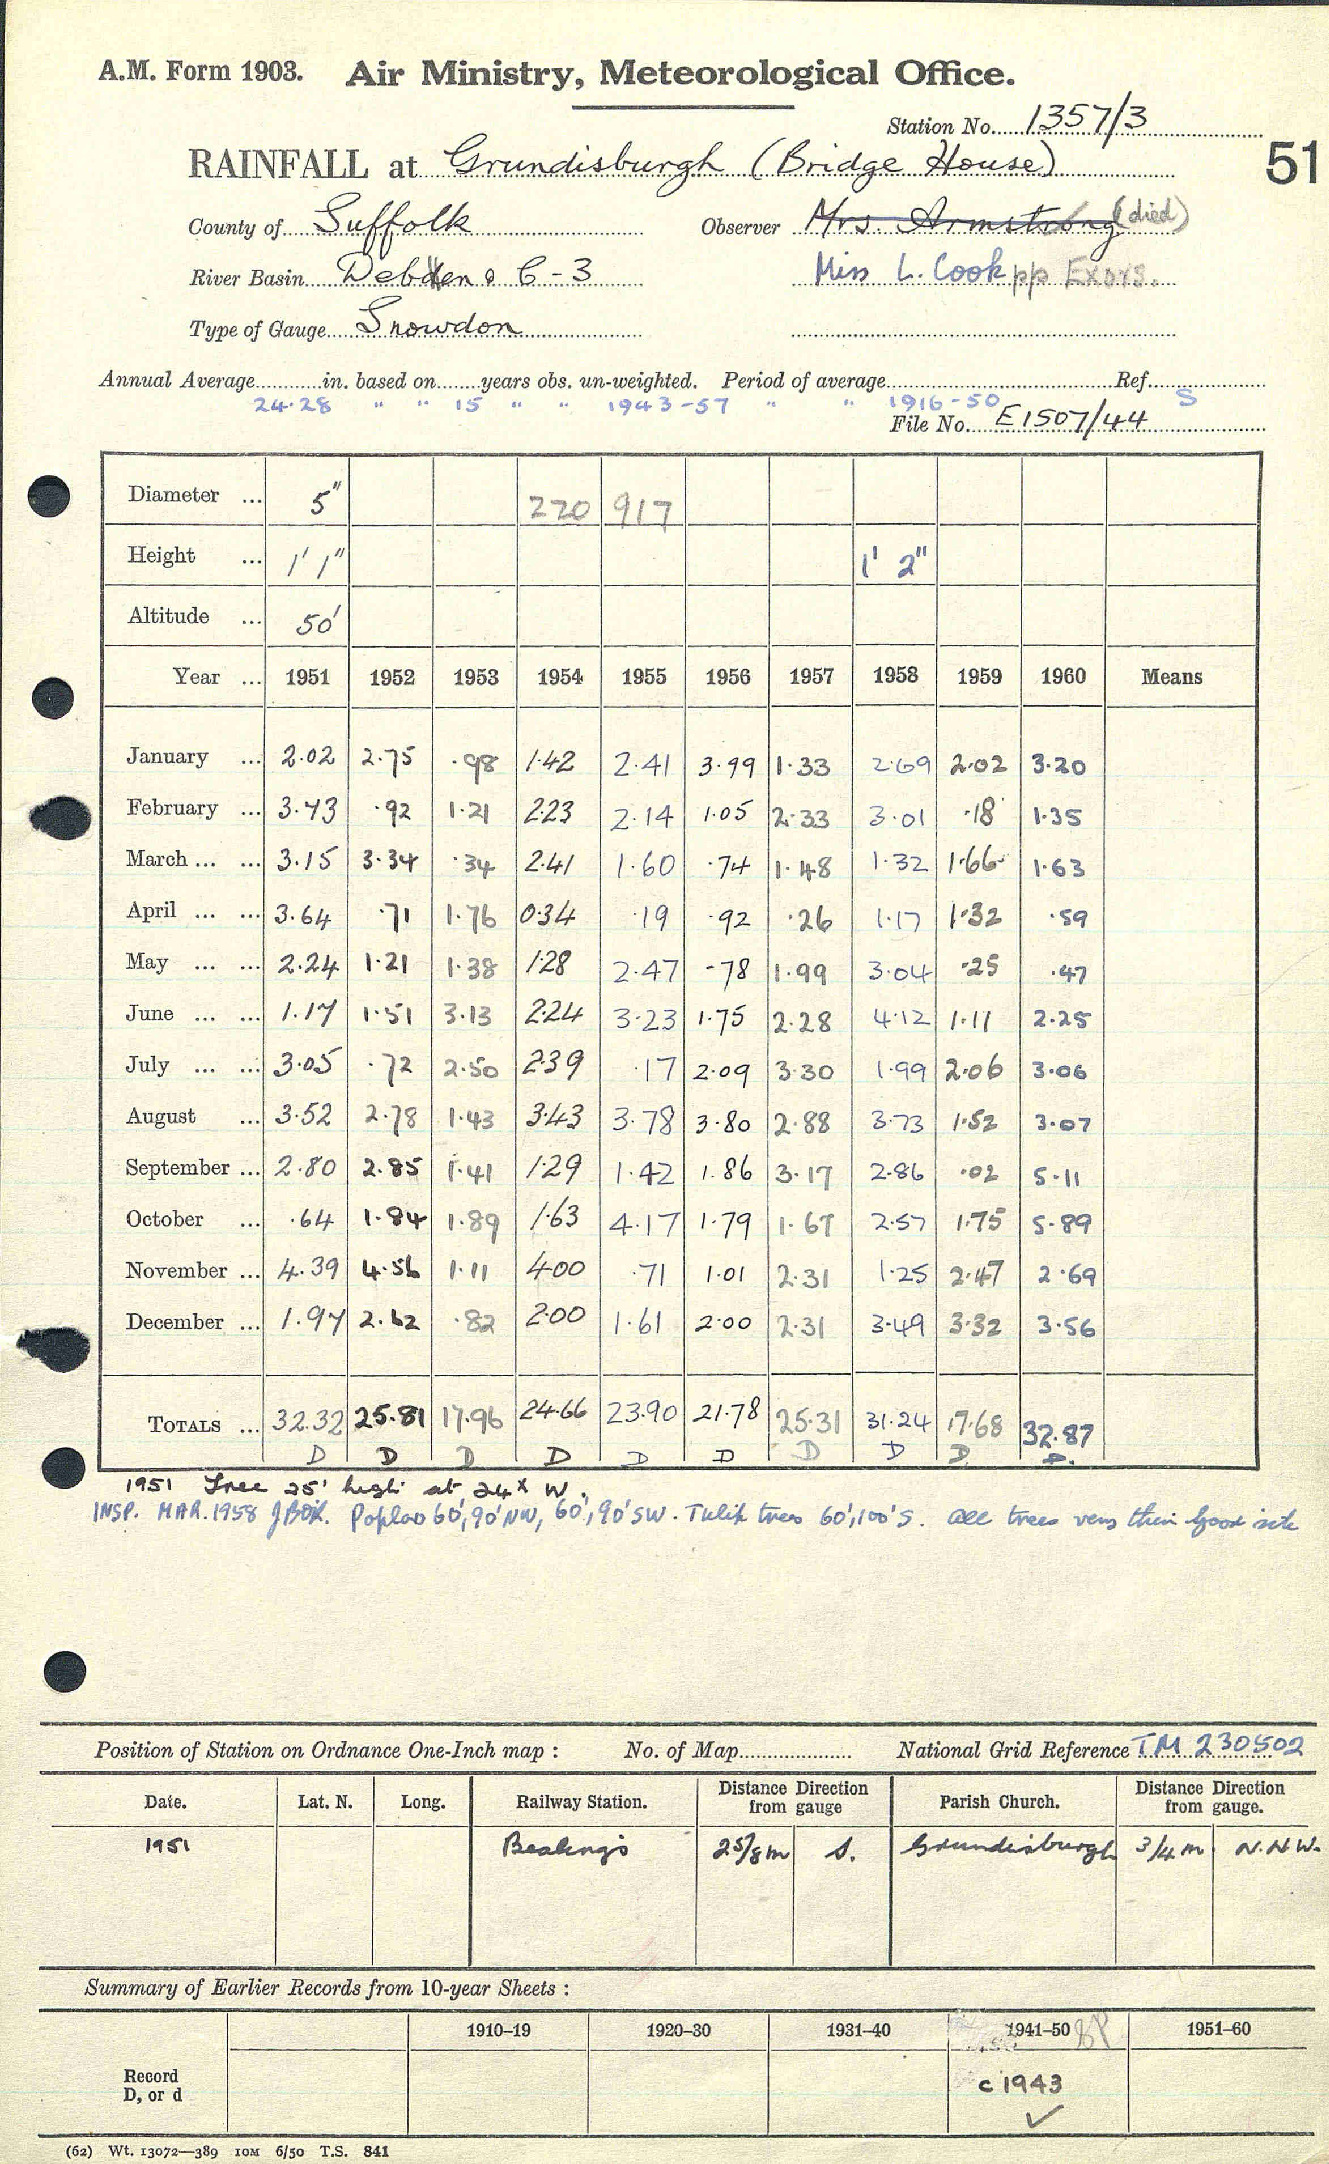 A.M. Form 1903. Air Ministry, Meteorological Office.
Station No. 1357/3
51
RAINFALL at Grundisburgh (Bridge House)
County of Suffolk Observer Mrs. Armstrong (died)
River Basin Debden & C-3 Miss L. Cook pp Exors.
Type of Gauge Snowdon
Annual Average in. based on years obs. un-weighted. Period of average Ref.
24.28 " " 15 " " 1943-57 " " 1916-50 S
File No. E1507/44
Diameter ... 5" 220 917
Height ... 1' 1" 1' 2"
Altitude ... 50'
Year ... 1951 1952 1953 1954 1955 1956 1957 1958 1959 1960 Means
January ... 2.02 2.75 .98 1.42 2.41 3.99 1.33 2.69 2.02 3.20
February ... 3.73 .92 1.21 2.23 2.14 1.05 2.33 3.01 .18 1.35
March ... ... 3.15 3.34 .34 2.41 1.60 .74 1.48 1.32 1.66 1.63
April ... ... 3.64 .71 1.76 0.34 .19 .92 .26 1.17 1.32 .59
May ... ... 2.24 1.21 1.38 1.28 2.47 .78 1.99 3.04 .25 .47
June ... ... 1.17 1.51 3.13 2.24 3.23 1.75 2.28 4.12 1.11 2.25
July ... ... 3.05 .72 2.50 2.39 .17 2.09 3.30 1.99 2.06 3.06
August ... 3.52 2.78 1.43 3.43 3.78 3.80 2.88 3.73 1.52 3.07
September ... 2.80 2.85 1.41 1.29 1.42 1.86 3.17 2.86 .02 5.11
October ... .64 1.84 1.89 1.63 4.17 1.79 1.67 2.57 1.75 5.89
November ... 4.39 4.56 1.11 4.00 .71 1.01 2.31 1.25 2.47 2.69
December ... 1.97 2.62 .82 2.00 1.61 2.00 2.31 3.49 3.32 3.56
TOTALS ... 32.32 25.81 17.96 24.66 23.90 21.78 25.31 31.24 17.68 32.87
D D D D D D D D D D.
1951 Tree 25' high at 24x W.
INSP. MAR. 1958 J Box. Poplar 60', 90' NW, 60', 90' SW. Tulip trees 60', 100' S. All trees very thin Good site
Position of Station on Ordnance One-Inch map : No. of Map National Grid Reference TM 230502
Date. Lat. N. Long. Railway Station. Distance Direction from gauge Parish Church. Distance Direction from gauge.
1951 Bealings 2 5/8 m S. Grundisburgh 3/4 m N.N.W.
Summary of Earlier Records from 10-year Sheets :
1910-19 1920-30 1931-40 1941-50 1951-60
Record
D, or d c 1943 ✓
(62) Wt. 13072—389 10M 6/50 T.S. 841